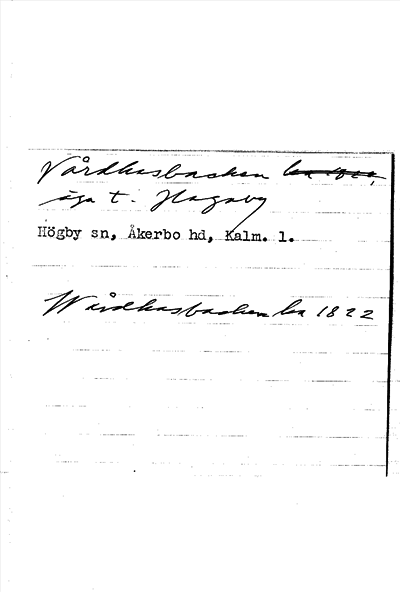 Vårdkasbacken
äga t. Hagaby
Högby sn, Åkerbo hd, Kalm. l.
Wårdkasbacken ha 1822